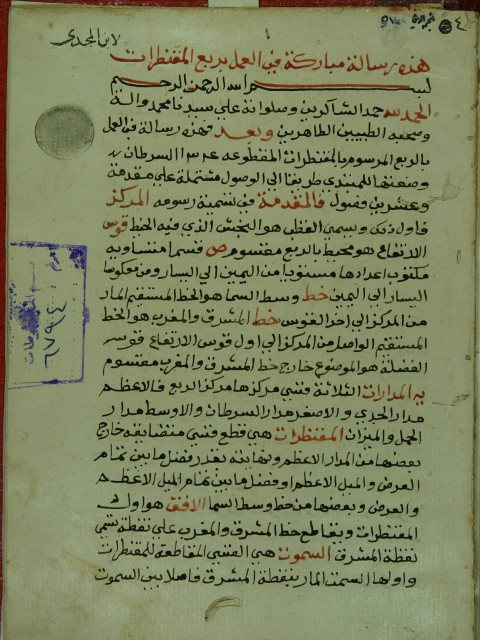 لابن المجدي
هذه رسالة مباركة في العمل بربع المقنطرات
بسم الله الرحمن الرحيم
الحمد لله حمد الشاكرين وصلواته على سيدنا محمد واله
وصحبه الطيبين الطاهرين وبعد فهذه رسالة في العمل
بالربع المرسوم بالمقنطرات المقطوعه على مدار السرطان
وضعتها للمبتدي طريقا الى الوصول مشتملة على مقدمة
وعشرين فصول فالمقدمة في تسمية رسومه المركز
ويسمى القطب هو البخش الذي فيه الخيط قوس
الارتفاع هو محيط بالربع مقسوم ص قسما متساويه
مكتوب اعدادها مستويا من اليمين الى اليسار ومعكوسا
اليسار الى اليمين خط وسط السما هو الخط المستقيم المار
من المركز الى اخر القوس خط المشرق والمغرب هو الخط
المستقيم الواصل من المركز الى اول قوس الارتفاع قوس
الفضلة هو الموضوع خارج خط المشرق والمغرب مقسوم
به المدارات الثلاثة قسي مركزها مركز الربع فالاعظم
مدار الجدي والاصغر مدار السرطان والاوسط مدار
الحمل والميزان المقنطرات هي قطع قسي متضايقه خارج
بعضها من المدار الاعظم ونهايته بقدر فضل ما بين تمام
العرض والميل الاعظم او فضل ما بين تمام الميل الاعظم
والعرض وبعضها من خط وسط السما الافق هو اول
المقنطرات وتقاطع خط المشرق والمغرب على نقطة تسمى
نقطة المشرق السموت هي القسي المقاطعة للمقنطرات
واولها السمت المار بنقطة المشرق فاصلا بين السموت